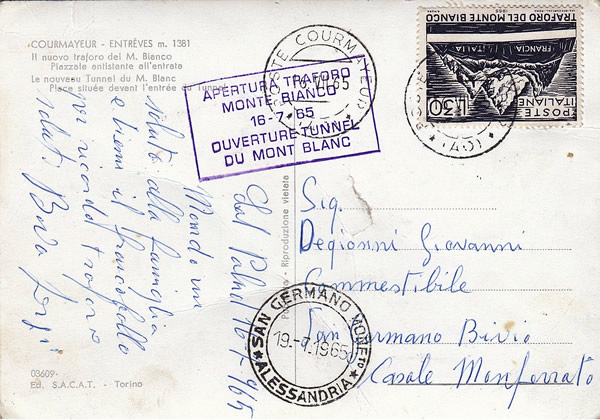 COURMAYEUR - ENTRÈVES m. 1381
Il nuovo traforo del M. Bianco
Piazzale antistante all'entrata
Le nouveau Tunnel du M. Blanc
Place située devant l'entrée du Tunnel
POSTE COURMAYEUR
APERTURA TRAFORO
MONTE BIANCO
16-7-'65
OUVERTURE TUNNEL
DU MONT BLANC
TRAFORO DEL MONTE BIANCO
1965
FRANCIA
ITALIA
POSTE
ITALIANE
L.30
(AO)
Dal
16 7 965
Mando un
saluto alla famiglia
e tieni il francobollo
per ricordo traforo
saluti Bova
Riproduzione vietata
Sig.
Degionni Giovanni
Commestibile
San Germano Bivio
Casale Monferrato
SAN GERMANO MONFto
19.7.1965
ALESSANDRIA
03609
Ed. S.A.C.A.T. - Torino